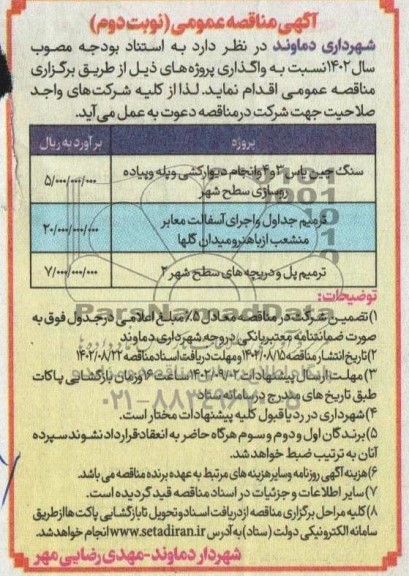 آگهی مناقصه عمومی (نوبت دوم)
شهرداری دماوند در نظر دارد به استناد بودجه مصوب
سال ۱۴۰۲ نسبت به واگذاری پروژه‌های ذیل از طریق برگزاری
مناقصه عمومی اقدام نماید. لذا از کلیه شرکت‌های واجد
صلاحیت جهت شرکت در مناقصه دعوت به عمل می‌آید.
پروژه برآورد به ریال
سنگ چین یاس ۳ و ۴ وانجام دیوارکشی وپله وپیاده
روسازی سطح شهر ۵/۰۰۰/۰۰۰/۰۰۰
ترمیم جداول واجرای آسفالت معابر
منشعب ازباهنرومیدان گلها ۲۰/۰۰۰/۰۰۰/۰۰۰
ترمیم پل و دریچه های سطح شهر ۲ ۷/۰۰۰/۰۰۰/۰۰۰
توضیحات:
۱) تضمین شرکت در مناقصه معادل ۵٪ مبلغ اعلامی درجدول فوق به
صورت ضمانتنامه معتبربانکی دروجه شهرداری دماوند
۲) تاریخ انتشار مناقصه ۱۴۰۲/۰۸/۱۵ ومهلت دریافت اسناد مناقصه ۱۴۰۲/۰۸/۲۲
۳) مهلت ارسال پیشنهادات ۱۴۰۲/۰۹/۰۲ ساعت ۱۴ وزمان بازگشایی پاکات
طبق تاریخ های مندرج درسامانه ستاد
۴) شهرداری در رد یا قبول کلیه پیشنهادات مختار است.
۵) برندگان اول و دوم و سوم هرگاه حاضر به انعقاد قرارداد نشوند سپرده
آنان به ترتیب ضبط خواهدشد.
۶) هزینه آگهی روزنامه وسایرهزینه های مرتبط به عهده برنده مناقصه می باشد.
۷) سایر اطلاعات و جزئیات در اسناد مناقصه قید گردیده است.
۸) کلیه مراحل برگزاری مناقصه ازدریافت اسنادوتحویل تابازگشایی پاکت هاازطریق
سامانه الکترونیکی دولت (ستاد) به آدرس www.setadiran.ir انجام خواهدشد.
شهردار دماوند-مهدی رضایی مهر